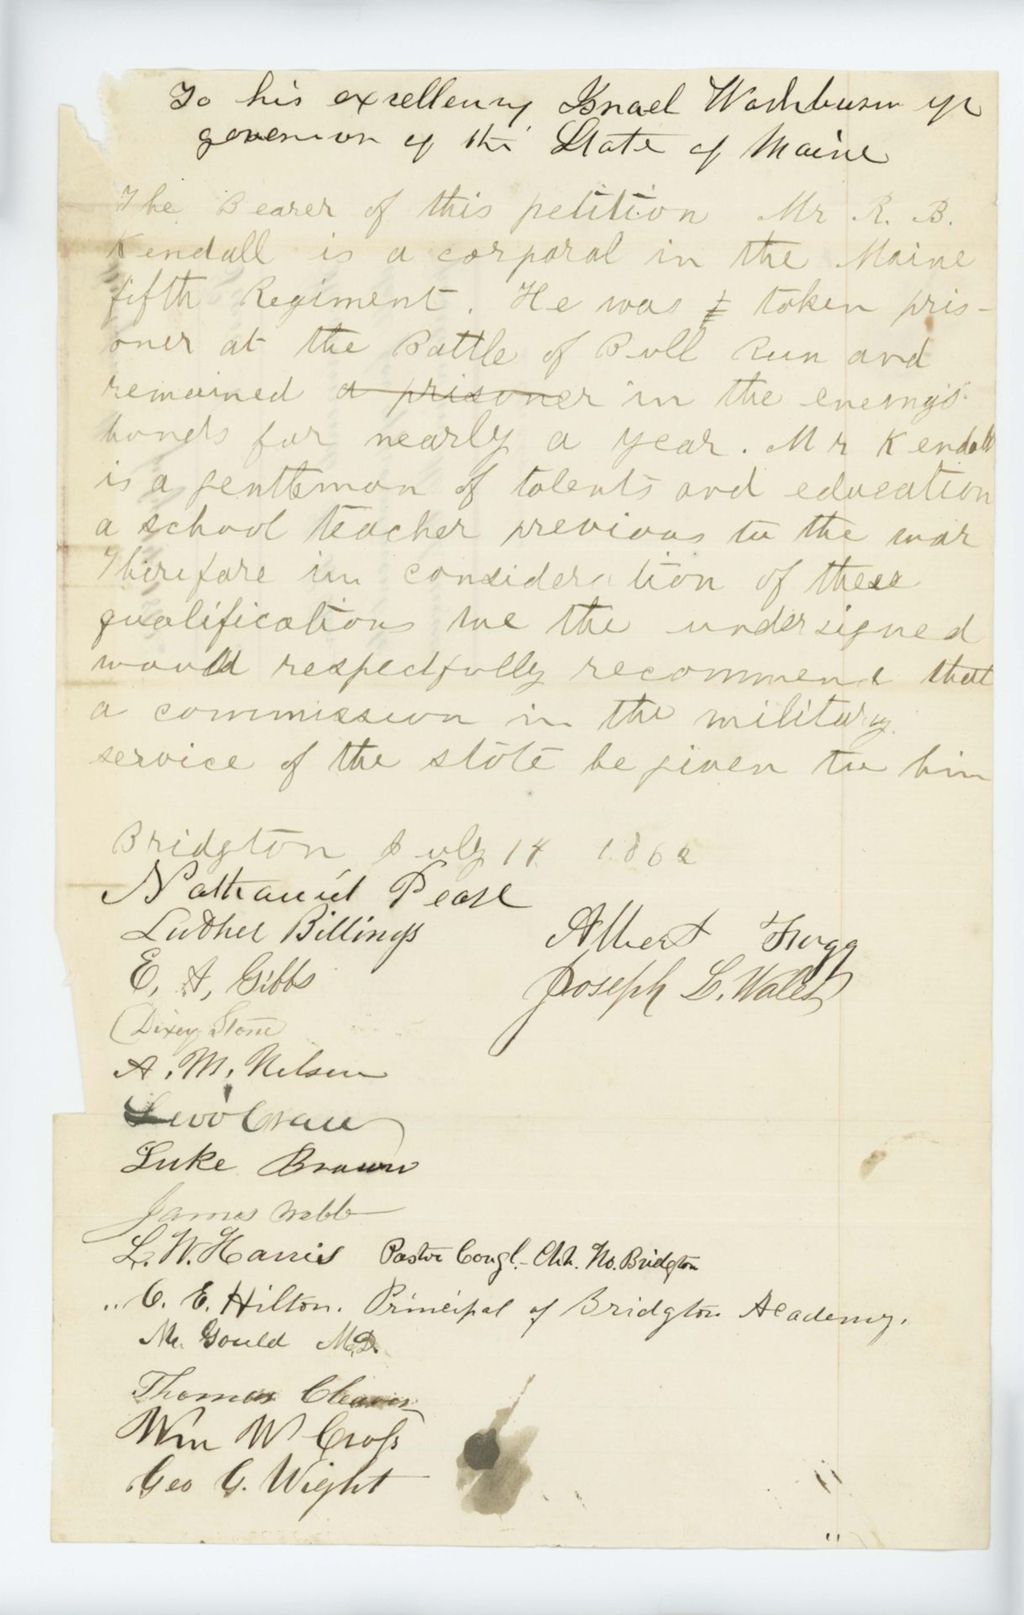 To his excellency Israel Washburn Jr
governor of the State of Maine
The Bearer of this petition Mr R. B.
Kendall is a corporal in the Maine
fifth Regiment. He was t taken pris-
oner at the Battle of Bull Run and
remained a prisoner in the enemys
hands for nearly a year. Mr Kendall
is a gentleman of talents and education
a school teacher previous to the war
Therefore in consideration of these
qualifications we the undersigned
would respectfully recommend that
a commission in the military
service of the state be given to him
Bridgton July 14 1862
Nathaniel Pease
Luther Billings Albert
E. A. Gibbs Joseph L. Wales
Dixey Stone
A. M. Nelson
Luke Brown
James Webb
L. W. Harris Pastor Congl. Chh. No. Bridgton
C. E. Hilton. Principal of Bridgton Academy.
Gould M.D.
Thomas Cleaves
Wm W Cross
Geo G. Wight